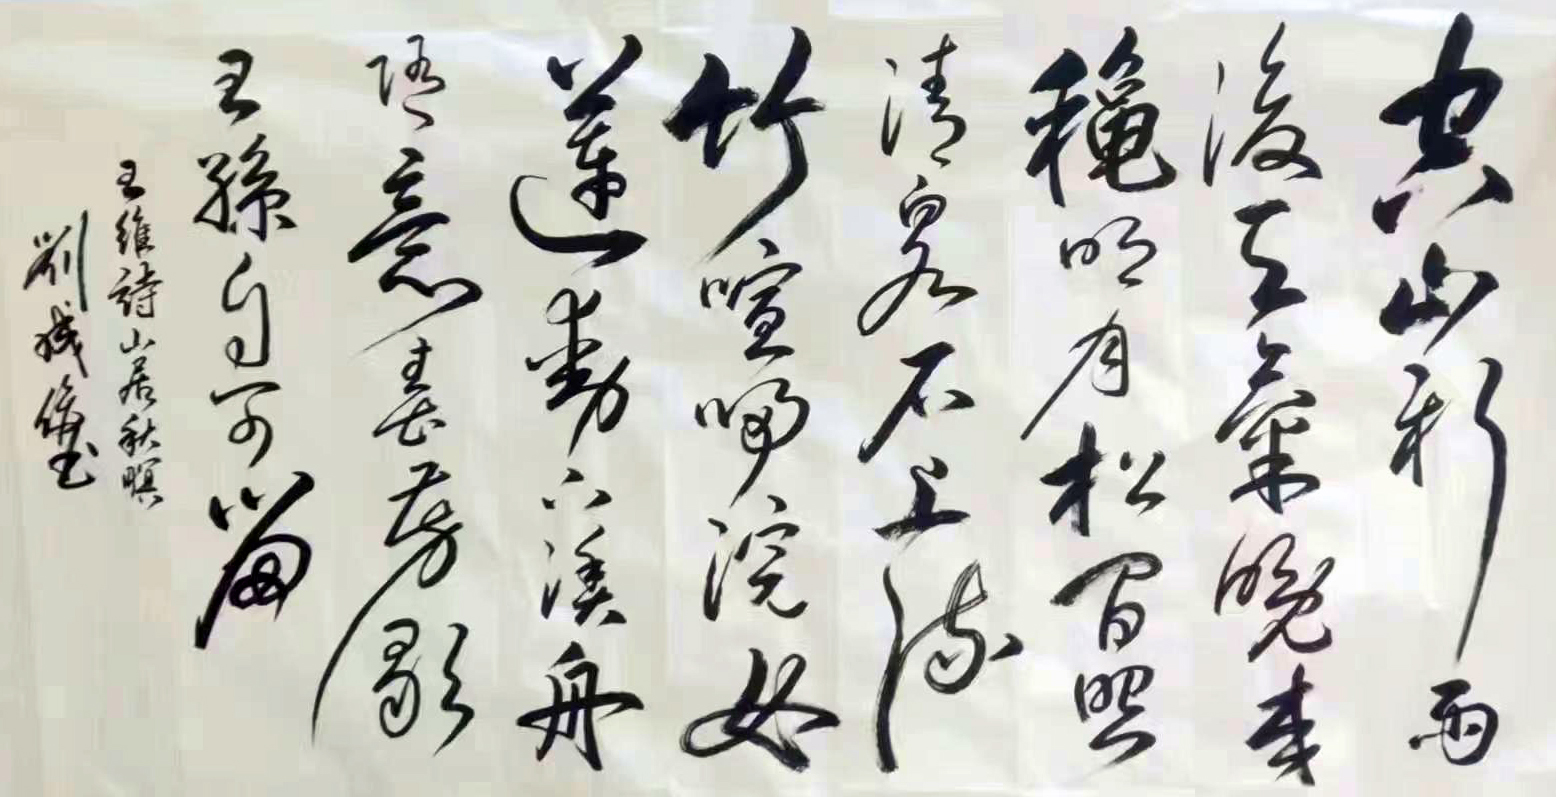 空山新雨
後天氣晚來
穐明月松間照
清泉石上流
竹喧歸浣女
蓮動下漁舟
隨意春芳歇
王孫自可留
王維詩山居秋暝
劉